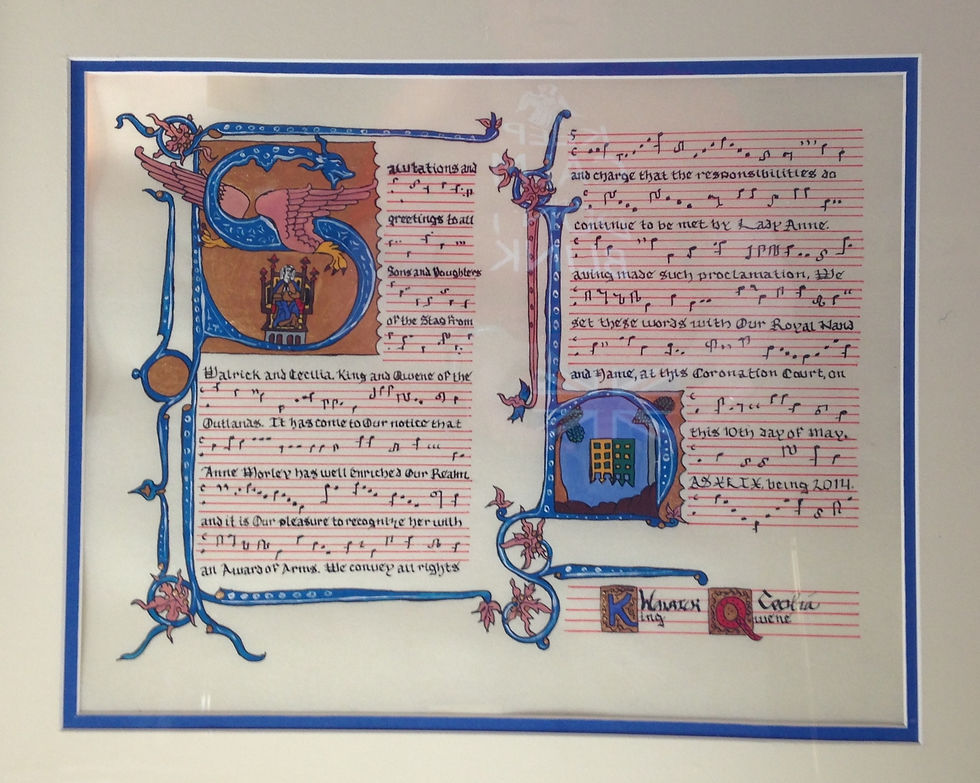 Salutations and
greetings to all
Sons and Doughters
of the Stag From
Walrick and Cecilia, King and Qwene of the
Outlands. It has come to Our notice that
Anne Morley has well enriched Our Realm
and it is Our pleasure to recognize her with
an Award of Arms. We convey all rights
and charge that the responsibilities do
continue to be met by Lady Anne.
aving made such proclamation, We
set these words with Our Royal Hand
and Name, at this Coronation Court, on
this 10th day of May,
AS XLIX, being 2014.
Walrick
King
Cecilia
Qwene